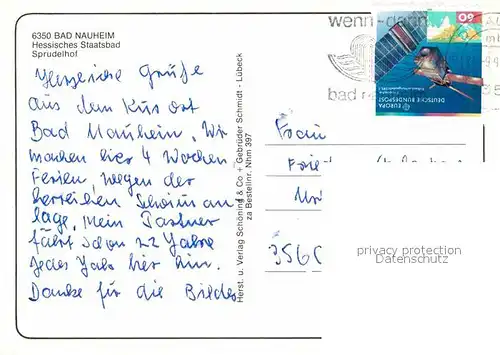 6350 BAD NAUHEIM
Hessisches Staatsbad
Sprudelhof
Herzliche Grüße
aus dem Kurort
Bad Nauheim, Wir
machen hier 4 Wochen
Ferien, wegen der
herrlichen
lage. Mein Partner
fährt schon 22 Jahre
jedes Jahr hier hin.
Danke für die Bilder
Herst. u. Verlag Schöning & Co + Gebrüder Schmidt - Lübeck
za Bestellnr. Nhm 397
wenn - dann
bad
60
EUROPA
DEUTSCHE BUNDESPOST
Frau
3560
privacy protection
Datenschutz